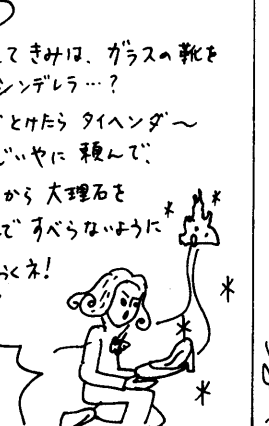 て きみは、ガラスの靴を
シンデレラ…?
とけたら タイヘンダ〜
じいやに 頼んで、
から 大理石を
で すべらないように
おくネ!